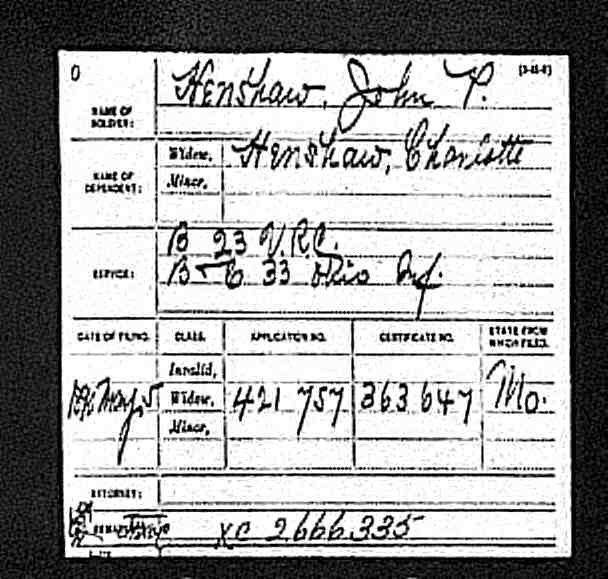 0 Henshaw, John P. (3-45-0)
NAME OF
SOLDIER:
Widow, Henshaw, Charlotte
NAME OF
DEPENDENT:
Minor,
B 23 V.R.C.
SERVICE: B & E 33 Ohio Inf.
DATE OF FILING. CLASS. APPLICATION NO. CERTIFICATE NO. STATE FROM
WHICH FILED.
Invalid,
May 5 Widow, 421 757 363 647 Mo.
Minor,
ATTORNEY:
XC 2666335